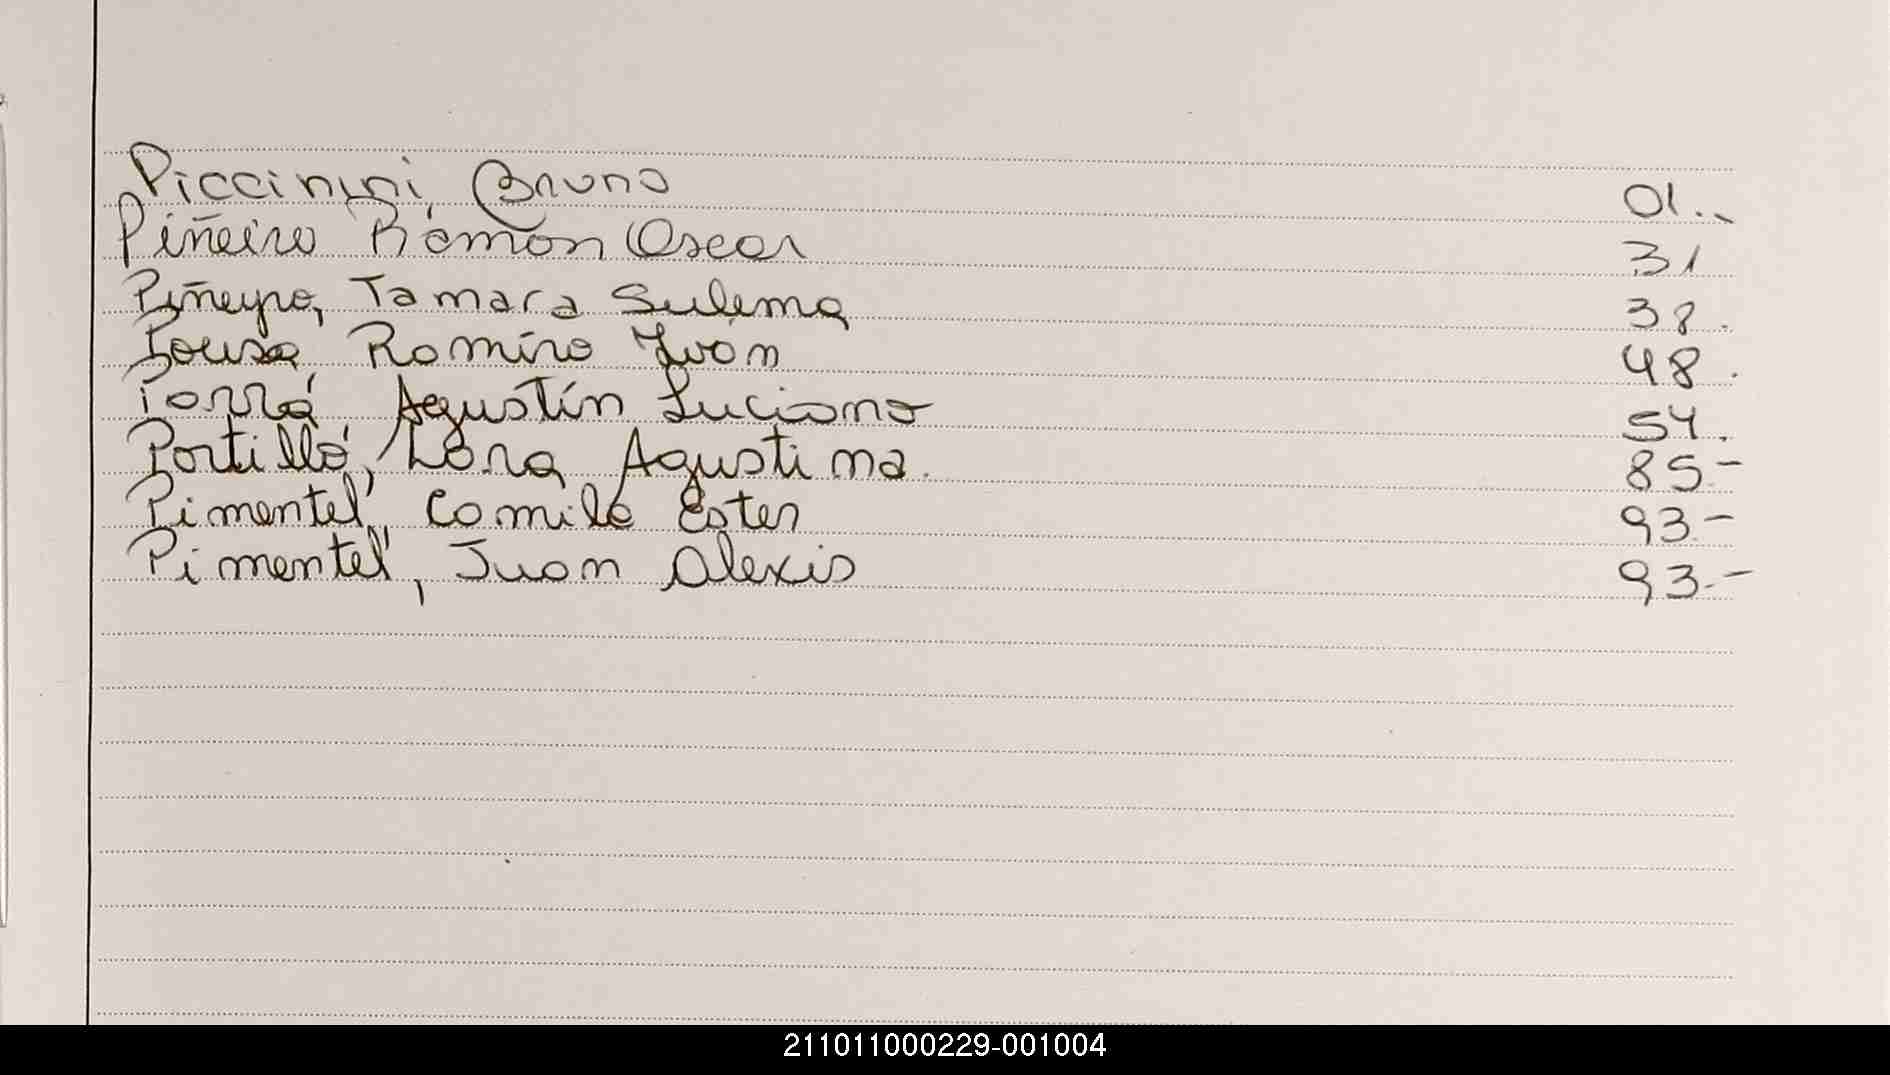 Piccinini, Bruno 01.-
Piñeiro Ramón Oscar 31
Piñeyro, Tamara Sulema 38.
Sousa Romina Ivon 48.
Porrá Agustín Luciano 54.
Portillo, Lara Agustina. 85-
Pimentel, Camila Ester 93.-
Pimentel, Juan Alexis 93.-
211011000229-001004